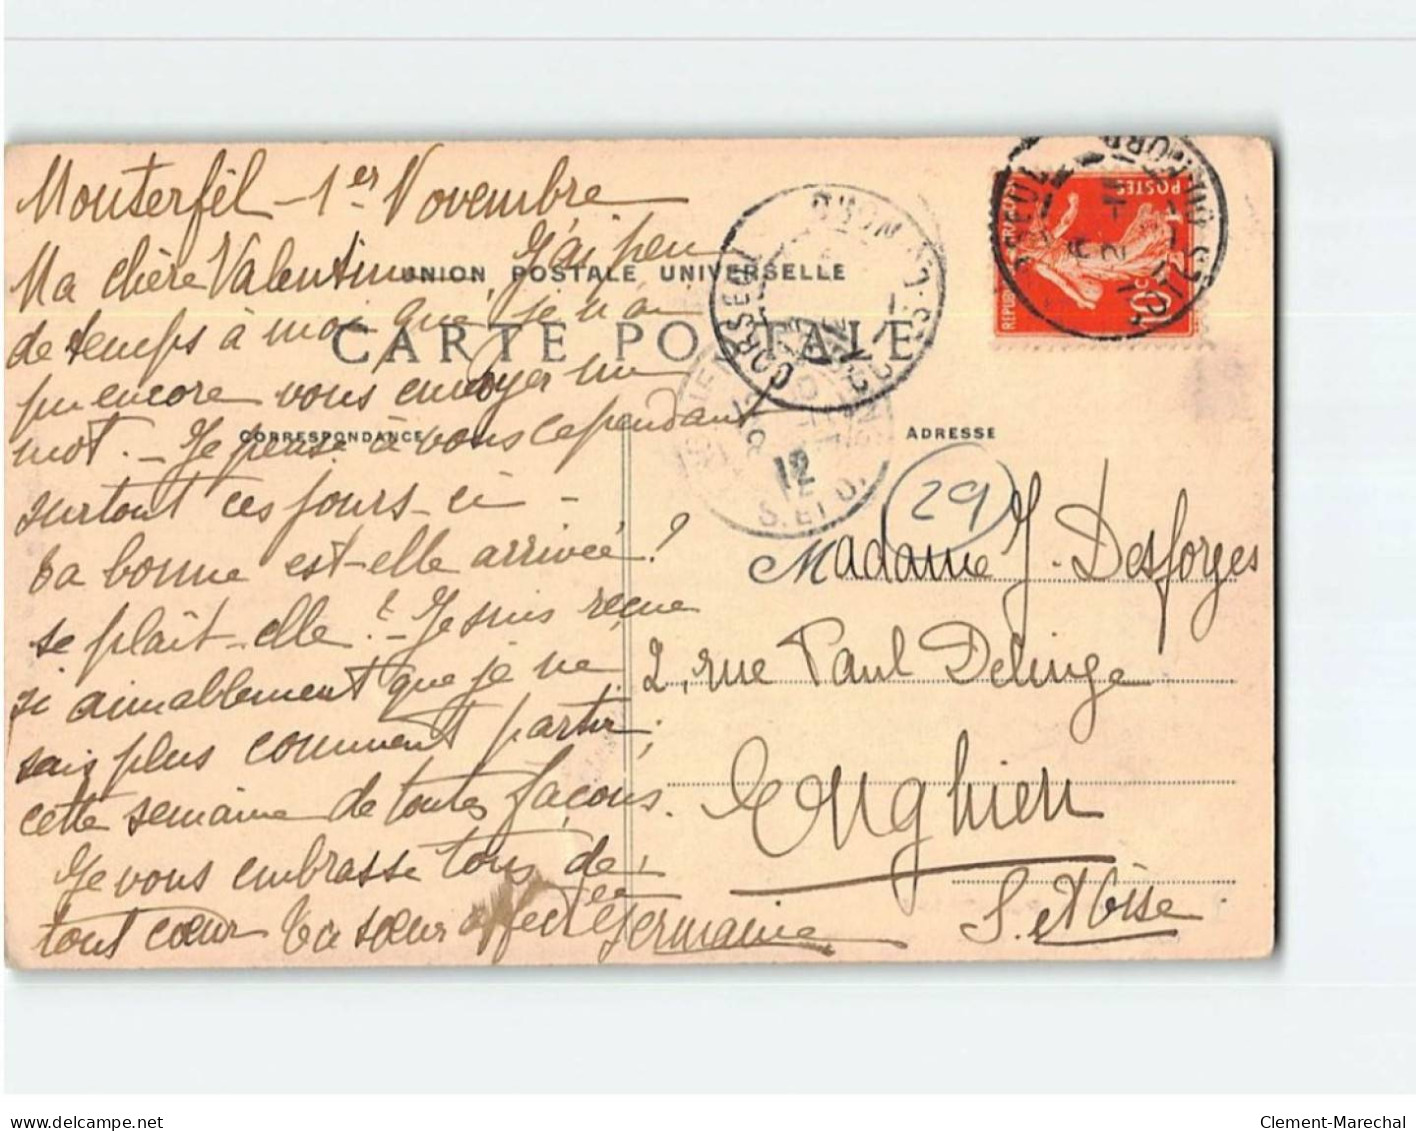 Monterfil - 1er Novembre
Ma chère Valentine, J'ai peu
UNION POSTALE UNIVERSELLE
de temps à moi que je n'ai
CARTE POSTALE
pu encore vous envoyer un
mot. - Je pense à vous cependant
CORRESPONDANCE
surtout ces jours-ci -
ta bonne est-elle arrivée ?
se plaît-elle ? - Je suis reçue
si aimablement que je ne
sais plus comment partir
cette semaine de toutes façons.
Je vous embrasse tous de
tout cœur Ta sœur affectée
Germaine
ADRESSE
29
Madame J. Desforges
2, rue Paul Delinge
Enghien
S. et Oise
CORSEUL
CÔTES-DU-NORD
12
S. ET O.
POSTES
10
delcampe.net
Clement-Marechal